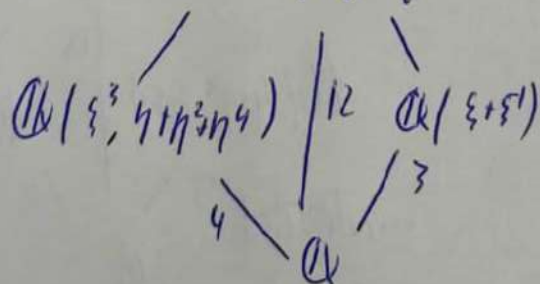 ℚ(ξ³, η+η²+η⁴) 12 ℚ(ξ+ξ⁻¹)
4 3
ℚ